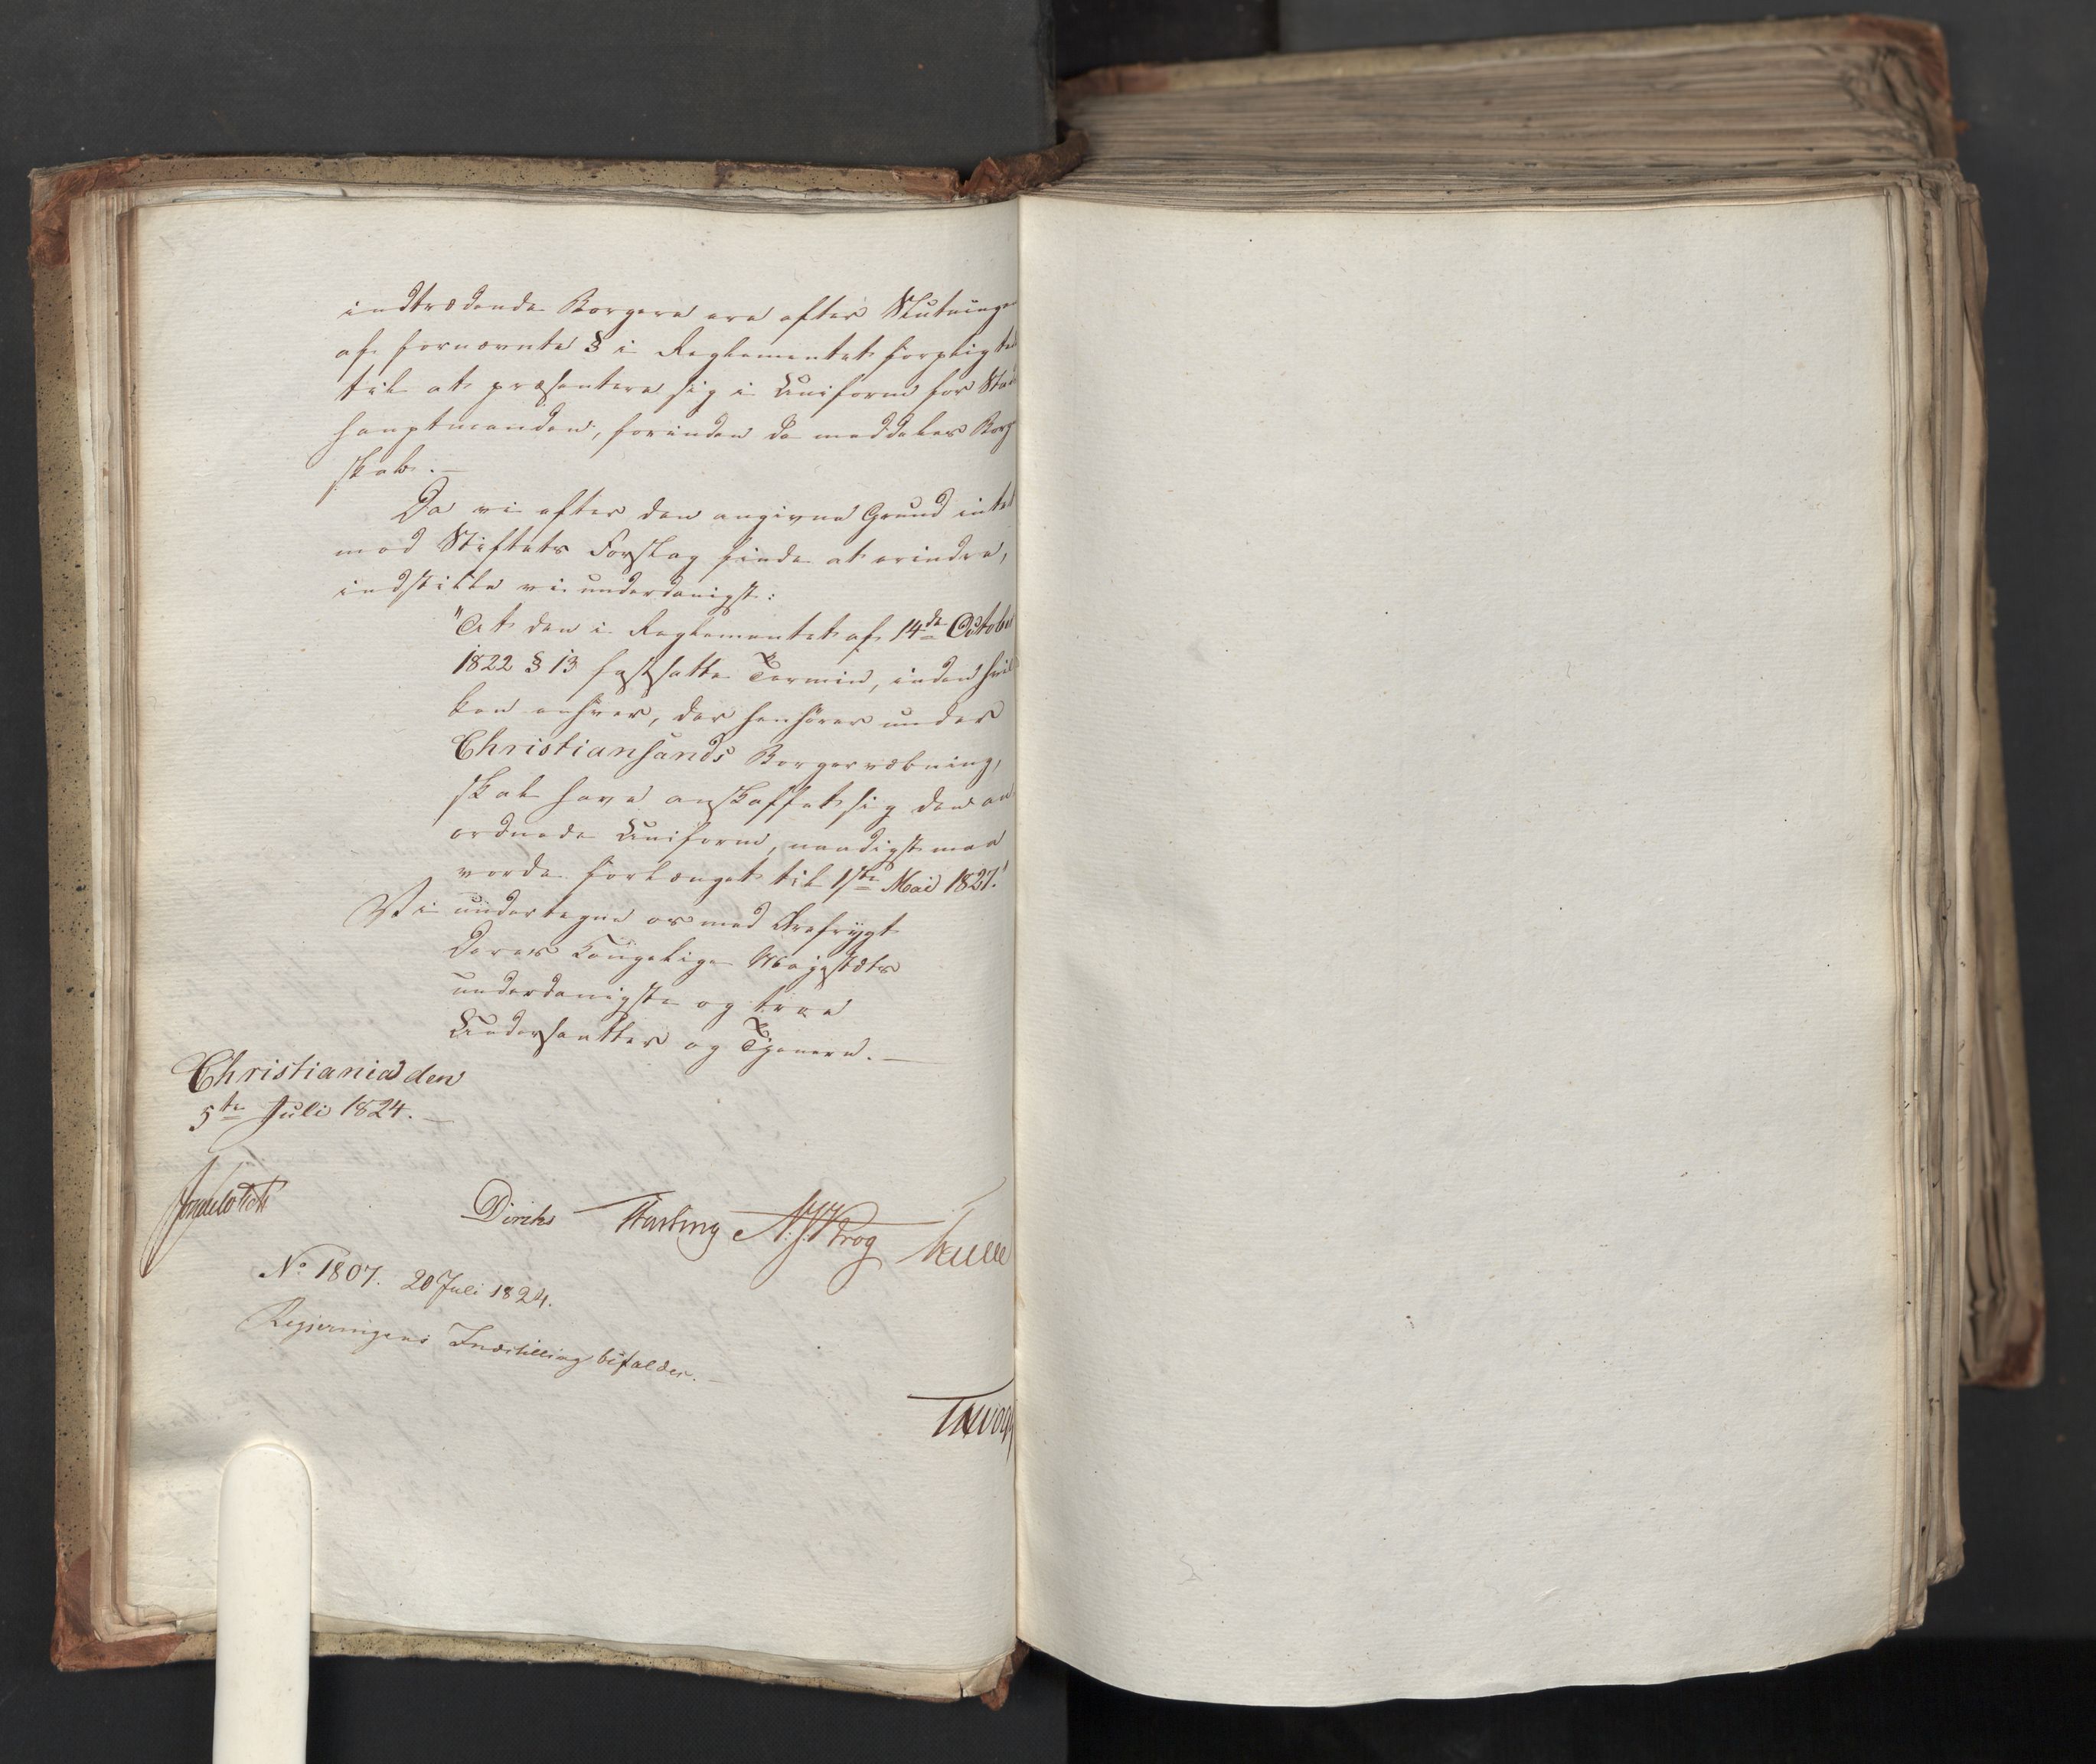 indtrædende Borgere ere efter Slutningen
af fornævnte § i Reglementet forpligtede
til at præsentere sig i Uniform for Stads
hauptmanden, forinden de meddeles Borger
skab. —
Da vi efter den angivne Grund intet
mod Stiftets Forslag finde at erindre,
indstille vi underdanigst:
"At den i Reglementet af 14de October
1822 § 13 fastsatte Termin, inden hvil
ken enhver, der henhører under
Christiansands Borgervæbning,
skal have anskaffet sig den an
ordnede Uniform, naadigst maa
vorde forlænget til 1ste Mai 1827."
Vi undertegne os med Ærefrygt
Deres Kongelige Majestæts
underdanigste og troe
Undersaatter og Tjenere. —
Christiania den
5te Juli 1824. —
Diriks N. J. Krog
No 1807. 20 Juli 1824.
Regjeringens Indstilling bifaldes. —